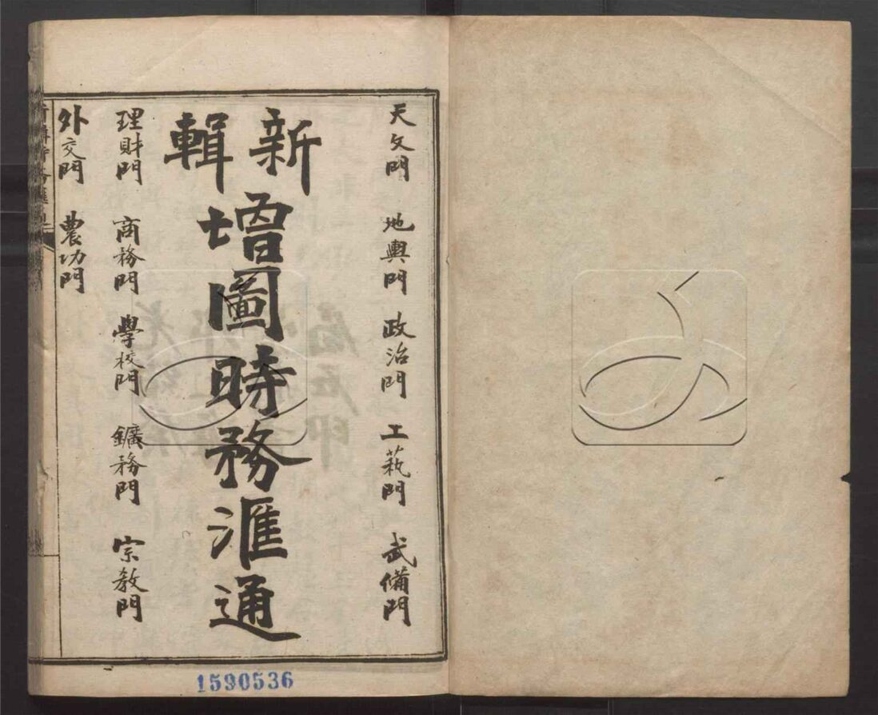 天文門 地輿門 政治門 工藝門 武備門
新輯
增圖時務滙通
理財門 商務門 學校門 鑛務門 宗教門
外交門 農功門
1590536